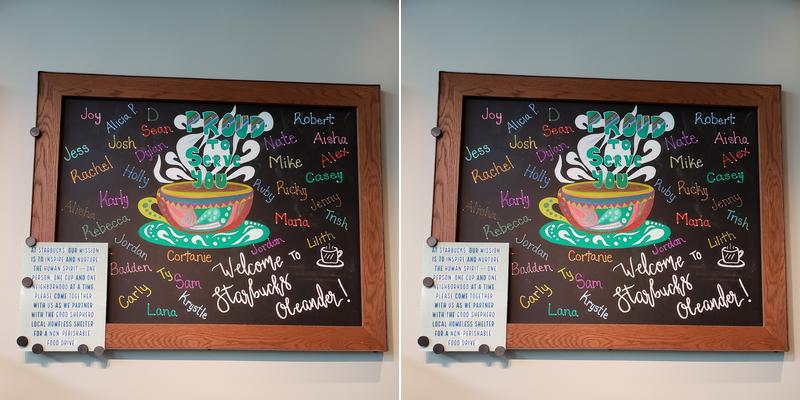 PROUD
TO
SERVE
YOU
Joy
Alicia P
D
Sean
Josh
Dylan
Jess
Rachel
Holly
Karly
Alieha
Rebecca
Jordan
Badden
Cortanie
Ty
Sam
Carly
Krystle
Lana
Robert
Nate
Aisha
Mike
Alex
Casey
Ruby
Ricky
Jenny
Maria
Trish
Lilith
Jordan
Welcome to
Starbucks
Oleander!
AT STARBUCKS, OUR MISSION
IS TO INSPIRE AND NURTURE
THE HUMAN SPIRIT - ONE
PERSON, ONE CUP AND ONE
NEIGHBORHOOD AT A TIME.
PLEASE COME TOGETHER
WITH US AS WE PARTNER
WITH THE GOOD SHEPHERD
LOCAL HOMELESS SHELTER
FOR A NON-PERISHABLE
FOOD DRIVE
PROUD
TO
SERVE
YOU
Joy
Alicia P
D
Sean
Josh
Dylan
Jess
Rachel
Holly
Karly
Alieha
Rebecca
Jordan
Badden
Cortanie
Ty
Sam
Carly
Krystle
Lana
Robert
Nate
Aisha
Mike
Alex
Casey
Ruby
Ricky
Jenny
Maria
Trish
Lilith
Jordan
Welcome to
Starbucks
Oleander!
AT STARBUCKS, OUR MISSION
IS TO INSPIRE AND NURTURE
THE HUMAN SPIRIT - ONE
PERSON, ONE CUP AND ONE
NEIGHBORHOOD AT A TIME.
PLEASE COME TOGETHER
WITH US AS WE PARTNER
WITH THE GOOD SHEPHERD
LOCAL HOMELESS SHELTER
FOR A NON-PERISHABLE
FOOD DRIVE